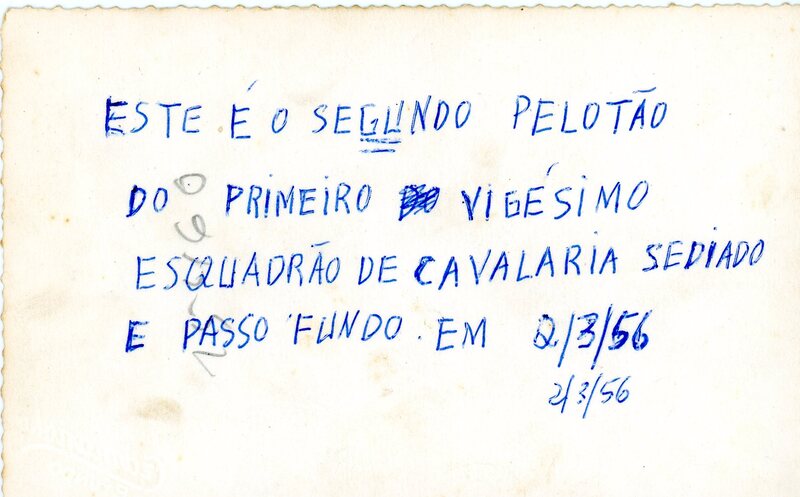 ESTE É O SEGUNDO PELOTÃO
DO PRIMEIRO VIGÉSIMO
ESQUADRÃO DE CAVALARIA SEDIADO
E PASSO FUNDO. EM 2/3/56
2/3/56